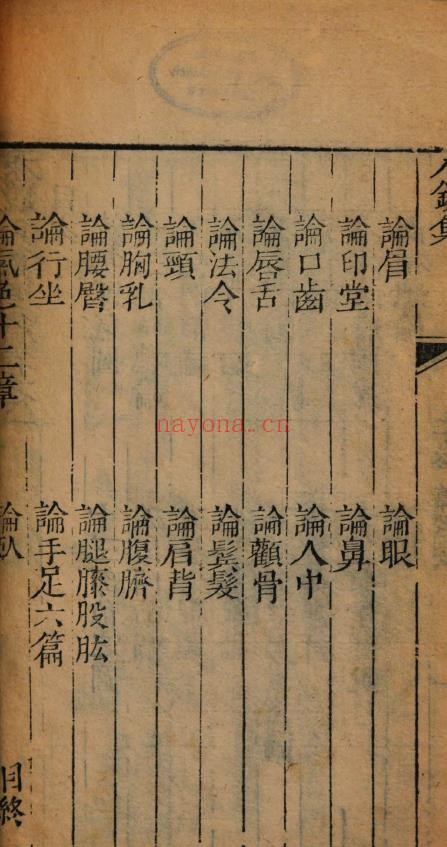 論眉 論眼
論印堂 論鼻
論口齒 論人中
論唇舌 論顴骨
論法令 論鬂髮
論頸 論肩背
論胸乳 論腹臍
論腰臀 論腿膝股肱
論行坐 論手足六篇
論氣色十二章 論臥 目終
nayona.cn